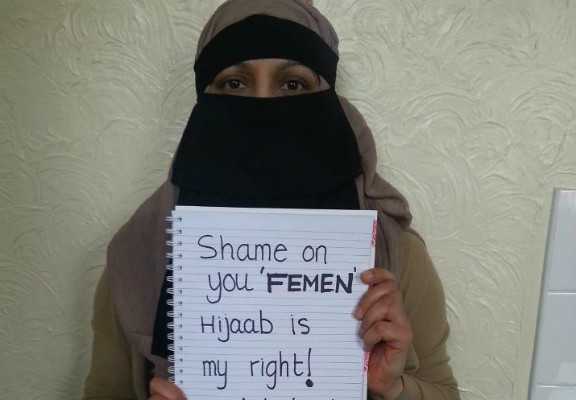 Shame on
you 'FEMEN'
Hijaab is
my right!